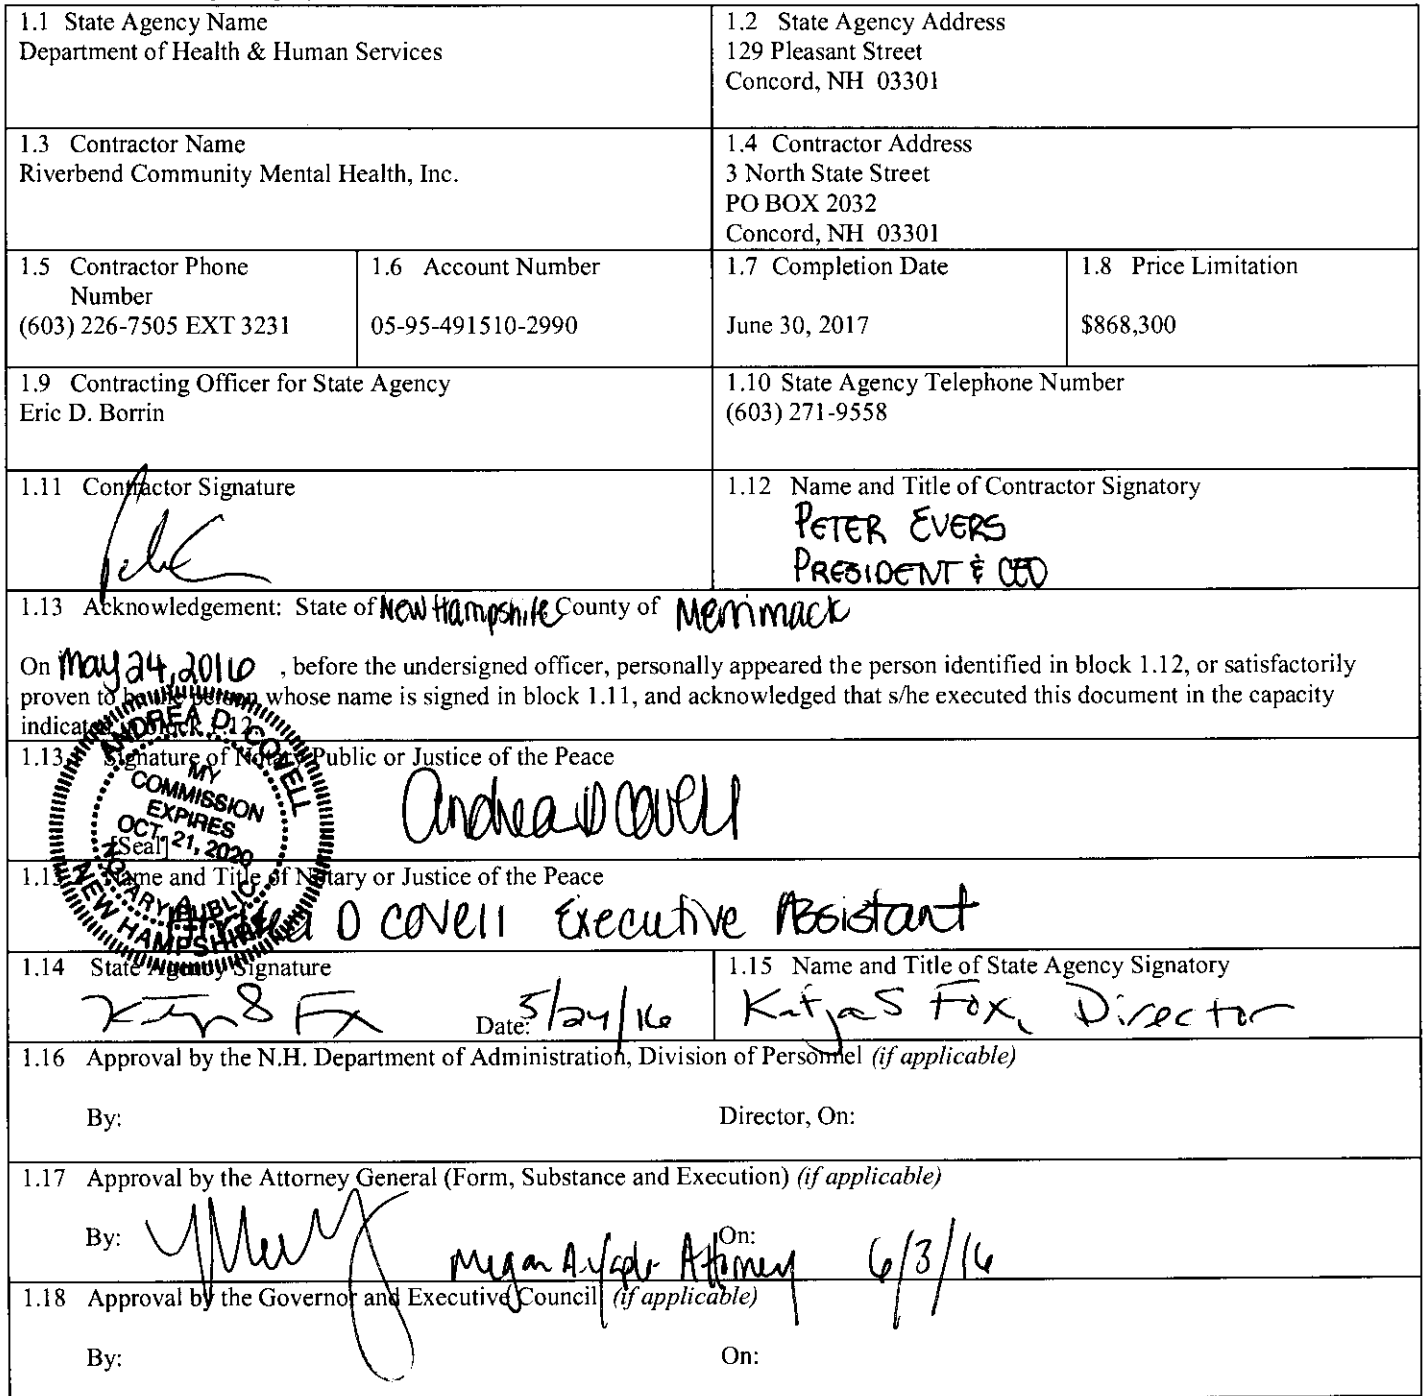 1.1 State Agency Name
Department of Health & Human Services
1.2 State Agency Address
129 Pleasant Street
Concord, NH 03301
1.3 Contractor Name
Riverbend Community Mental Health, Inc.
1.4 Contractor Address
3 North State Street
PO BOX 2032
Concord, NH 03301
1.5 Contractor Phone
Number
(603) 226-7505 EXT 3231
1.6 Account Number
05-95-491510-2990
1.7 Completion Date
June 30, 2017
1.8 Price Limitation
$868,300
1.9 Contracting Officer for State Agency
Eric D. Borrin
1.10 State Agency Telephone Number
(603) 271-9558
1.11 Contractor Signature
1.12 Name and Title of Contractor Signatory
PETER EVERS
PRESIDENT & CEO
1.13 Acknowledgement: State of New Hampshire County of Merrimack
On May 24, 2016 , before the undersigned officer, personally appeared the person identified in block 1.12, or satisfactorily
proven to be the person whose name is signed in block 1.11, and acknowledged that s/he executed this document in the capacity
indicated in block 1.12.
1.13. Signature of Notary Public or Justice of the Peace
Andrea D Covell
ANDREA D. COVELL
MY
COMMISSION
EXPIRES
OCT. 21, 2020
NOTARY PUBLIC
NEW HAMPSHIRE
[Seal]
1.13. Name and Title of Notary or Justice of the Peace
Andrea D Covell Executive Assistant
1.14 State Agency Signature
Date: 5/24/16
1.15 Name and Title of State Agency Signatory
Katja S Fox, Director
1.16 Approval by the N.H. Department of Administration, Division of Personnel (if applicable)
By:
Director, On:
1.17 Approval by the Attorney General (Form, Substance and Execution) (if applicable)
By:
On:
Megan A. Attorney 6/3/16
1.18 Approval by the Governor and Executive Council (if applicable)
By:
On: